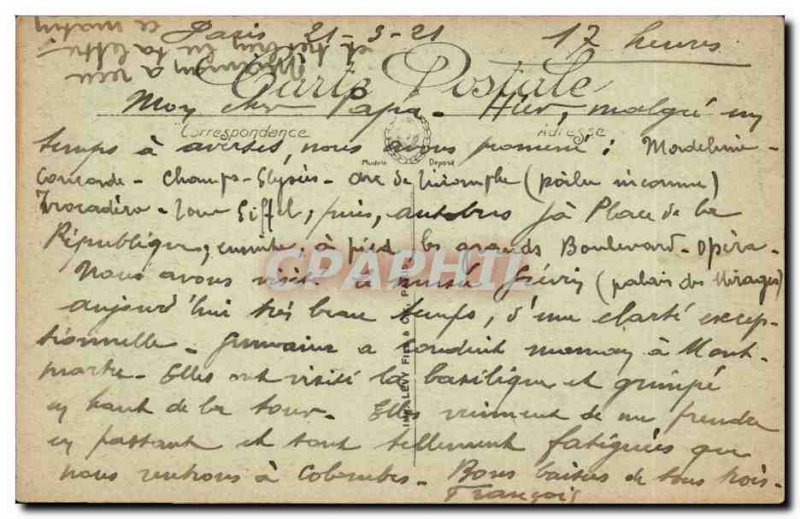 Paris 21-3-21 17 heures
Maman a reçu
et très bien lu ta lettre
ce matin
Carte Postale
Mon cher Papa - Hier, malgré un
Correspondance
Adresse
Modèle Déposé
temps à averses, nous avons promené : Madeleine -
Concorde - Champs-Elysées - Arc de Triomphe (poilu inconnu)
Trocadéro - Tour Eiffel, puis, autobus jà Place de la
République, ensuite, à pied les grands Boulevard - Opéra -
Nous avons visité le musée Grévin (palais des Mirages)
aujourd'hui très beau temps, d'une clarté excep-
tionnelle - Germaine a conduit maman à Mont-
martre - Elles ont visité la basilique et grimpé
en haut de la tour - Elles viennent de me prendre
en passant et sont tellement fatiguées que
nous rentrons à Colombes - Bons baisers de tous trois -
François
CPAPHIL
IMP. LÉVY FILS & Cie, P